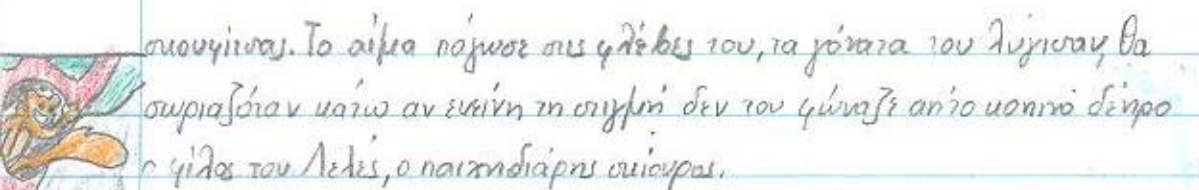 σκουφίτσας. Το αίμα πάγωσε στις φλέβες του, τα γόνατα του λύγισαν, θα
σωριαζόταν κάτω αν εκείνη τη στιγμή δεν του φώναζε απ'το κοπινό δέπρο
ο φίλος του Λελές, ο παιχνηδιάρης σκίουρας.